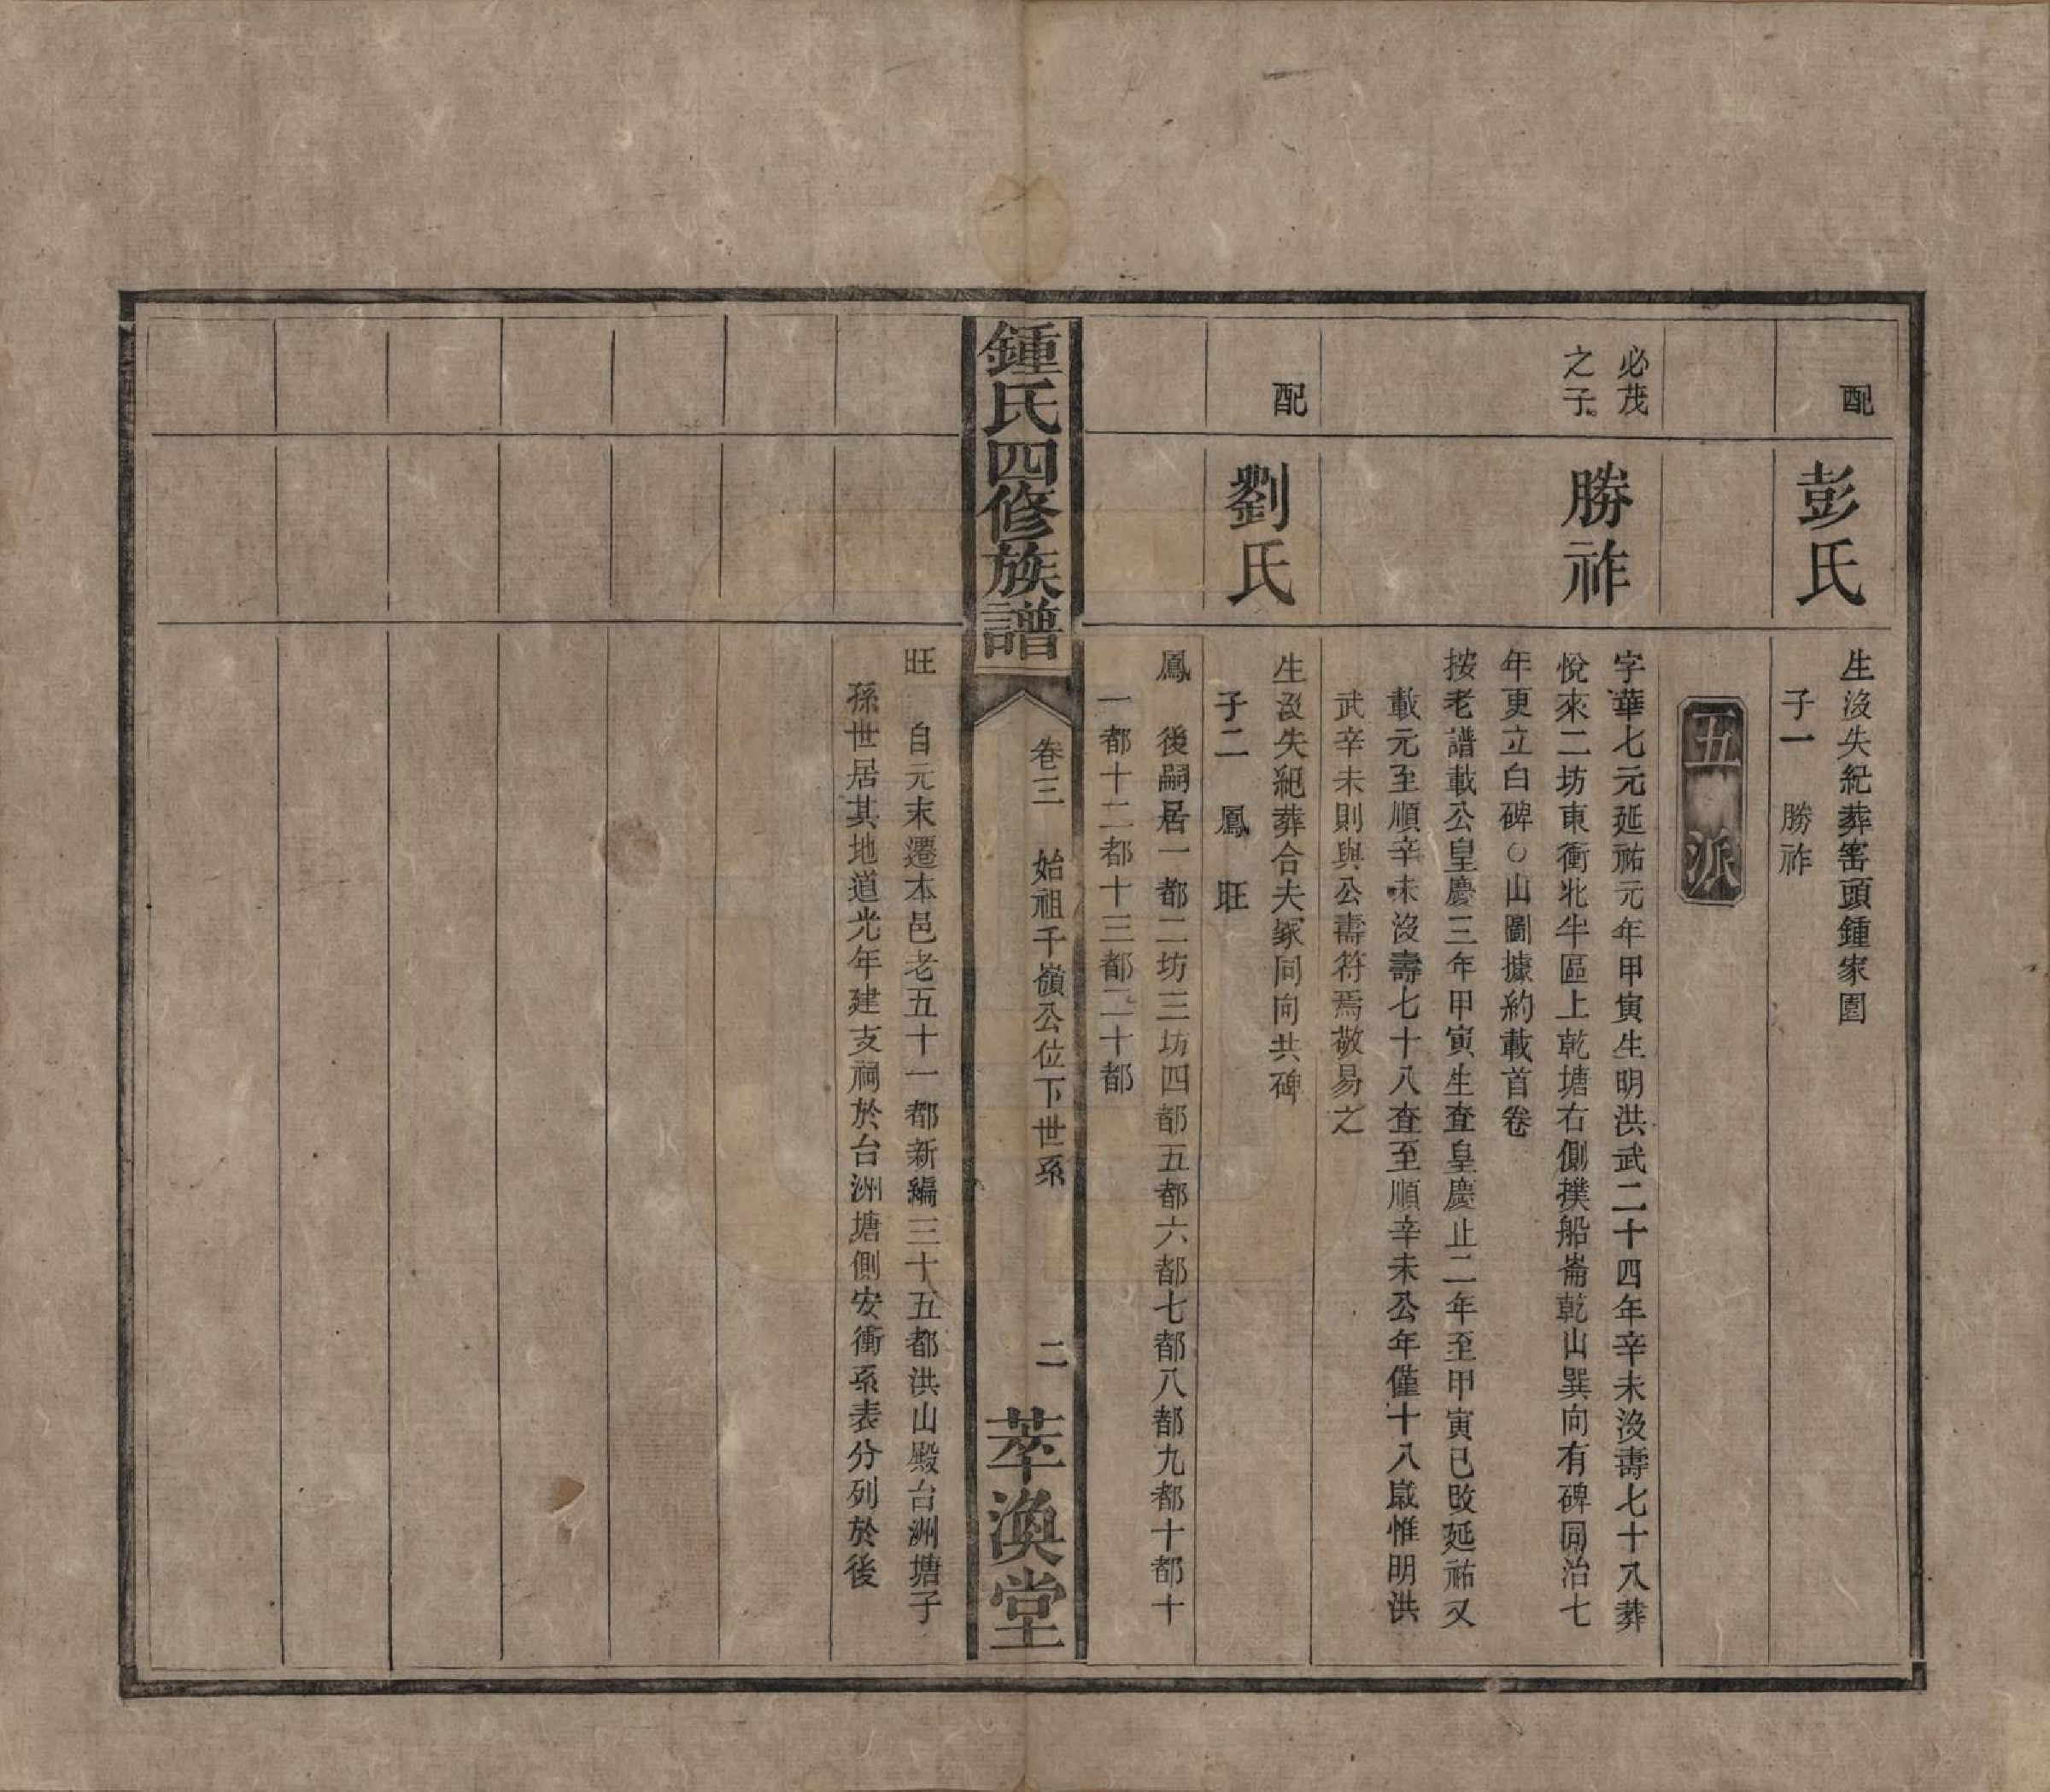 配
彭氏
生沒失紀葬窰頭鍾家園
子一　勝祚
五派
必茂
之子
勝祚
字華七元延祐元年甲寅生明洪武二十四年辛未沒壽七十八葬
悅來二坊東衝北牛區上乾塘右側撲船崙乾山巽向有碑同治七
年更立白碑○山圖據約載首卷
按老譜載公皇慶三年甲寅生查皇慶止二年至甲寅已改延祐又
載元至順辛未沒壽七十八查至順辛未公年僅十八歲惟明洪
武辛未則與公壽符焉敬易之
配
劉氏
生沒失紀葬合夫冢同向共碑
子二　鳳　旺
鳳　後嗣居一都二坊三坊四都五都六都七都八都九都十都十
一都十二都十三都二十都
鍾氏四修族譜
卷三　始祖千嶺公位下世系
二
萃渙堂
旺　自元末遷本邑老五十一都新編三十五都洪山殿台洲塘子
孫世居其地道光年建支祠於台洲塘側安衝系表分列於後